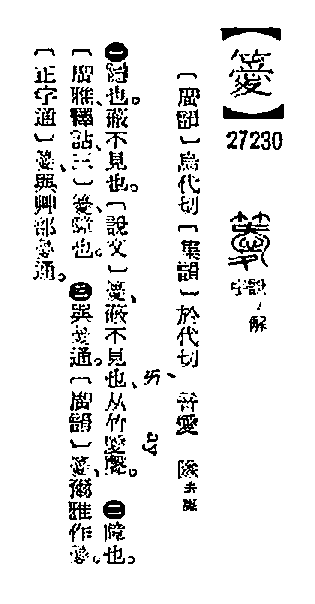 【𥴨】
27230
說ノ解字
〔廣韻〕烏代切〔集韻〕於代切 音愛 隊去聲
ㄞˋ ay
㊀隱也。蔽不見也。〔說文〕𥴨、蔽不見也、从竹愛聲。㊁障也。
〔廣雅、釋詁三〕𥴨、障也。㊂與薆通。〔廣韻〕𥴨、爾雅作薆。
〔正字通〕𥴨、與艸部薆通。